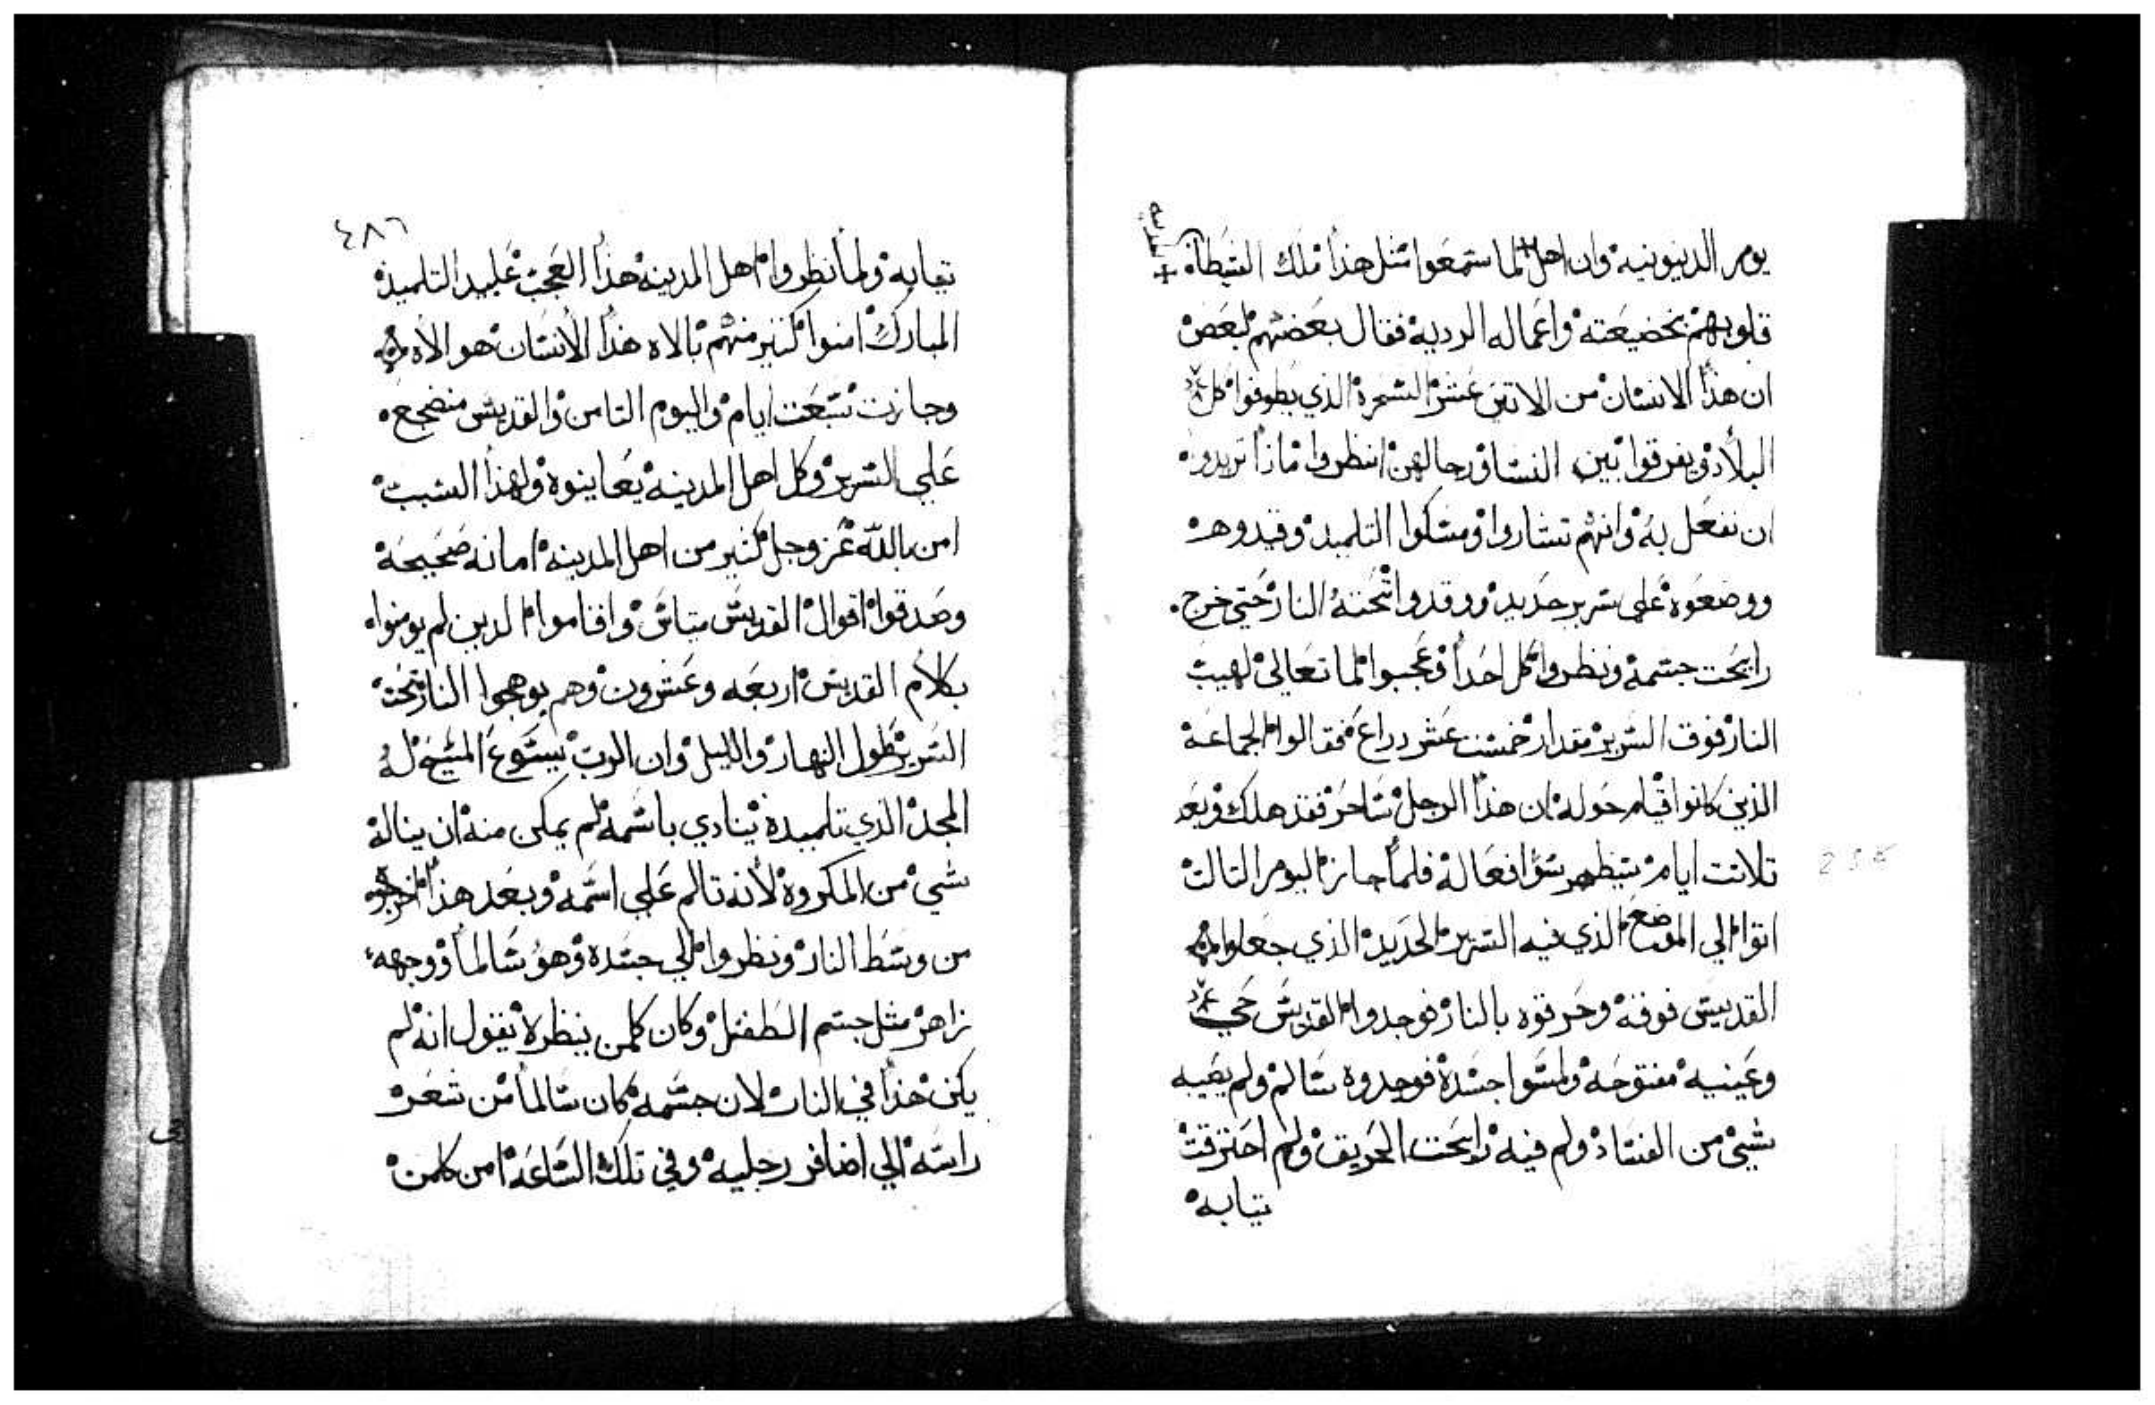 يوم الدينونيه وان اهل لما استمعوا مثل هذا ملك الشيطان
المدينه
قلوبهم بخضيعته واعماله الرديه فقال بعضهم لبعض
ان هذا الانسان من الاتنى عشر السحره الذي يطوفوا كل
البلاد ويفرقوا بين النسا ورجالهن انظروا ماذا تريدون
ان نفعل به وانهم تشاروا ومسكوا التلميد وقيدوه
ووضعوه على سرير حديد ووقدوا تحته النار حتي خرج
رايحت جسمه ونظروا كل احدا وعجبوا لما تعالى لهيب
النار فوق السرير مقدار خمست عشر دراع فقالوا الجماعه
الذين كانوا قيام حوله ان هذا الرجل ساحر فقد هلك وبعد
تلاتت ايام سيظهر سؤ افعاله فلما جاز اليوم التالت
اتوا الي الموضع الذي فيه السرير الحديد الذي جعلوا
القديس فوقه وحرقوه بالنار فوجدوا القديس حي
وعينيه مفتوحه ولمسوا جسده فوجدوه سالم ولم يصيبه
شيئ من الفساد ولم فيه رايحت الحريق ولم احترقت
تيابه
٤٨٦
تيابه ولما نظروا اهل المدينه هذا العجب عليد التلميذ
المبارك امنوا كتير منهم بالاه هذا الانسان هو الاه
وجازت تسعت ايام واليوم التامن والقديس منضجع
علي السرير وكل اهل المدينه يعاينوه ولهذا السبب
امن بالله عز وجل كتير من اهل المدينه امانه صحيحه
وصدقوا اقوال القديس متياس واقاموا الدين لم يومنوا
بكلام القديس اربعه وعشرون وهم يوهجوا النار تحت
السرير طول النهار والليل وان الرب يسوع المسيح له
المجد الذي تلميده ينادي باسمه لم يمكن منه ان يناله
شي من المكروه لانه تالم على اسمه وبعد هذا اخرجوه
من وسط النار ونظروا الي جسده وهو سالما ووجهه
زاهر مثل جسم الطفل وكان كلمن ينظره يقول انه لم
يكن هذا في النار لان جسمه كان سالما من شعر
راسه الي اضافر رجليه وفي تلك الساعه امن كلمن